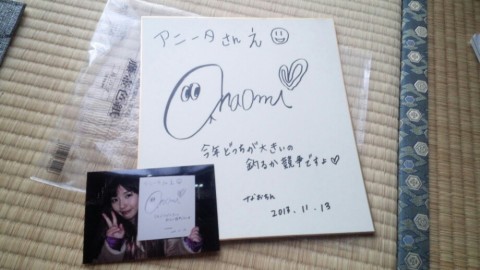 アニータさんえ
Onaomi
今年どっちが大きいの
釣るか競争ですよ♡
なおちん
2013.11.13